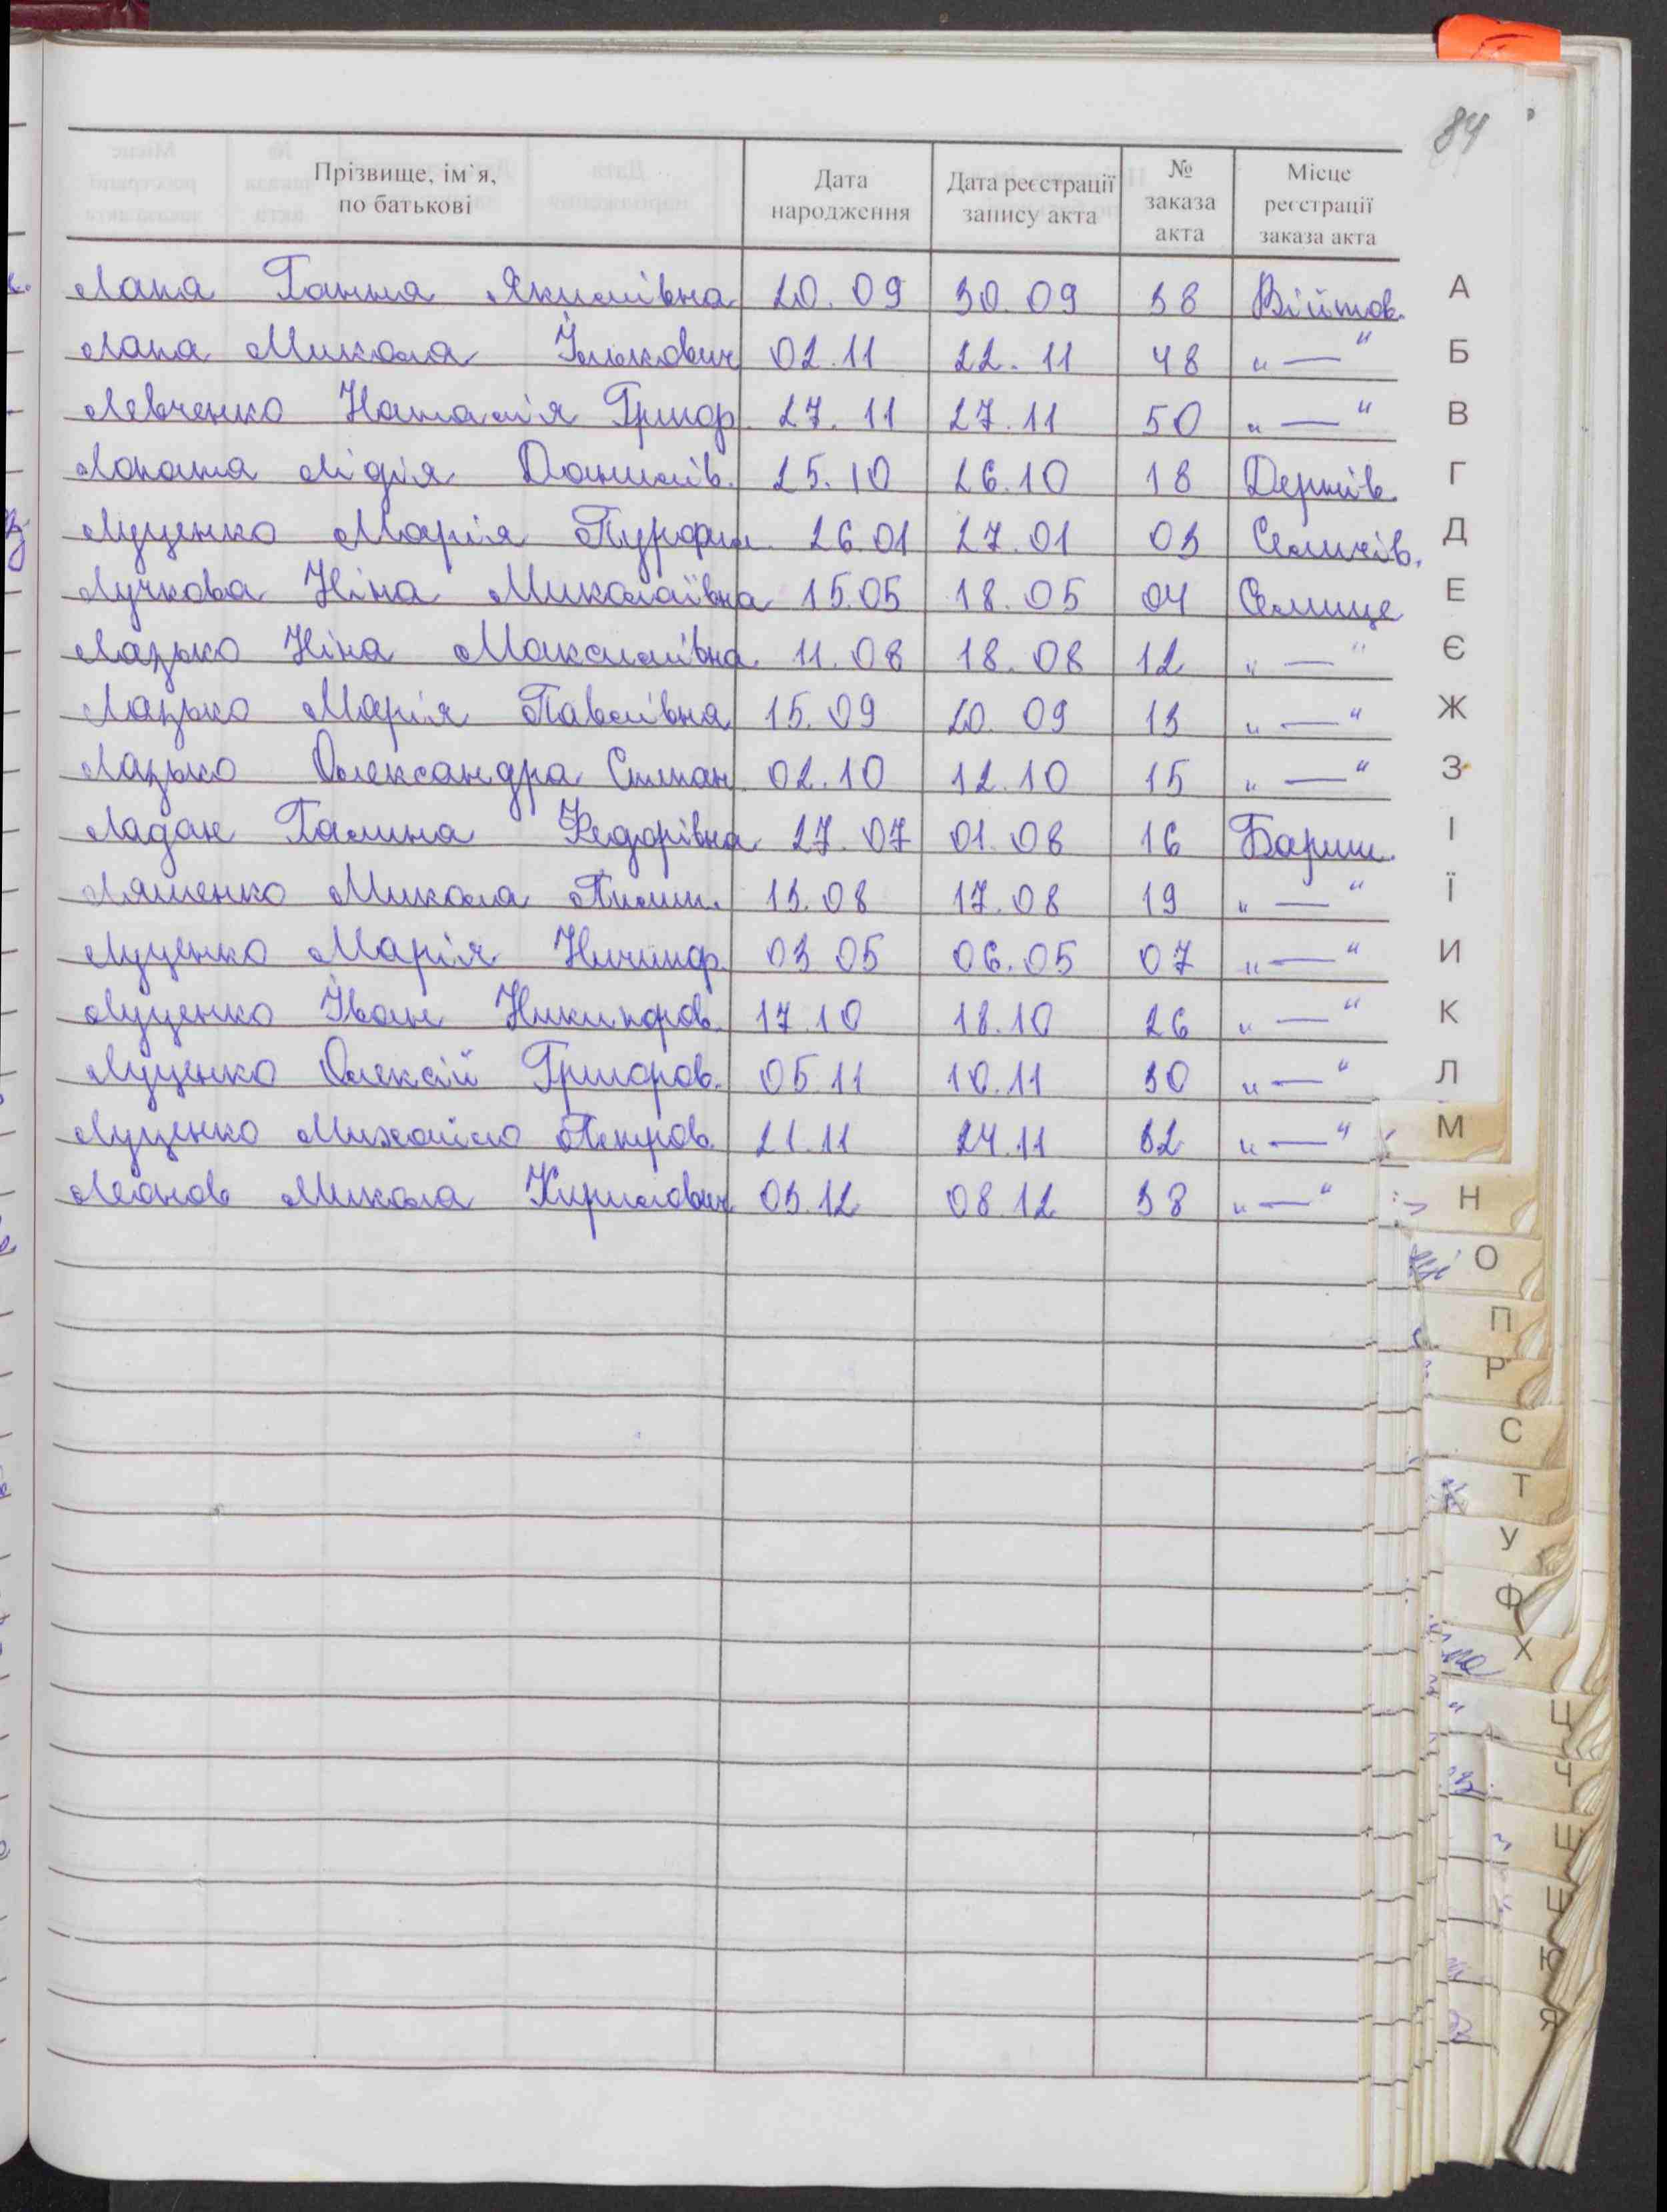 84
Прізвище, ім`я, по батькові | Дата народження | Дата реєстрації запису акта | № заказа акта | Місце реєстрації заказа акта
Лапа Ганна Якимівна 20.09 30.09 38 Війтов. А
Лапа Микола Ількович 02.11 22.11 48 „ — " Б
Левченко Наталія Григор. 27.11 27.11 50 „ — " В
Лопата Лідія Данилів. 25.10 26.10 18 Дернів. Г
Луценко Марія 26.01 27.01 03 Селичів. Д
Лучкова Ніна Миколаївна 15.05 18.05 04 Селище Е
Лазько Ніна Максимівна 11.08 18.08 12 „ — " Є
Лазько Марія Павлівна 15.09 20.09 13 „ — " Ж
Лазько Олександра Степан. 02.10 12.10 15 „ — " З
Ладан Галина Федорівна 27.07 01.08 16 Бариш. І
Ляшенко Микола Пилип. 13.08 17.08 19 „ — " Ї
Луценко Марія Ничипор. 03.05 06.05 07 „ — " И
Луценко Іван Никифоров. 17.10 18.10 26 „ — " К
Луценко Олексій Григоров. 05.11 10.11 30 „ — " Л
Луценко Михайло Петров. 21.11 24.11 32 „ — " М
Леонов Микола Кирилович 03.12 08.12 38 „ — " Н
О
П
Р
С
Т
У
Ф
Х
Ц
Ч
Ш
Щ
Ю
Я